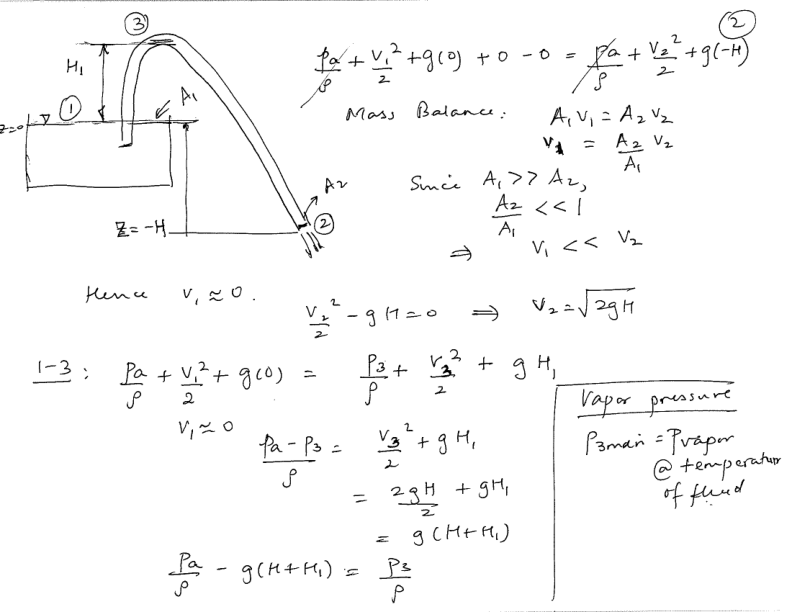 ②
③
H₁
①
A₁
z=0
A₂
②
Z = -H
pa/ρ + V₁²/2 + g(0) + 0 - 0 = pa/ρ + V₂²/2 + g(-H)
Mass Balance: A₁V₁ = A₂V₂
V₁ = A₂/A₁ V₂
Since A₁ >> A₂,
A₂/A₁ << 1
⇒ V₁ << V₂
Hence V₁ ≈ 0.
V₂²/2 - gH = 0 ⇒ V₂ = √2gH
1-3 : Pa/ρ + V₁²/2 + g(0) = P₃/ρ + V₃²/2 + gH₁
V₁ ≈ 0
Pa - P₃/ρ = V₃²/2 + gH₁
= 2gH/2 + gH₁
= g(H+H₁)
Pa/ρ - g(H+H₁) = P₃/ρ
Vapor pressure
P₃min = Pvapor
@ temperature
of fluid